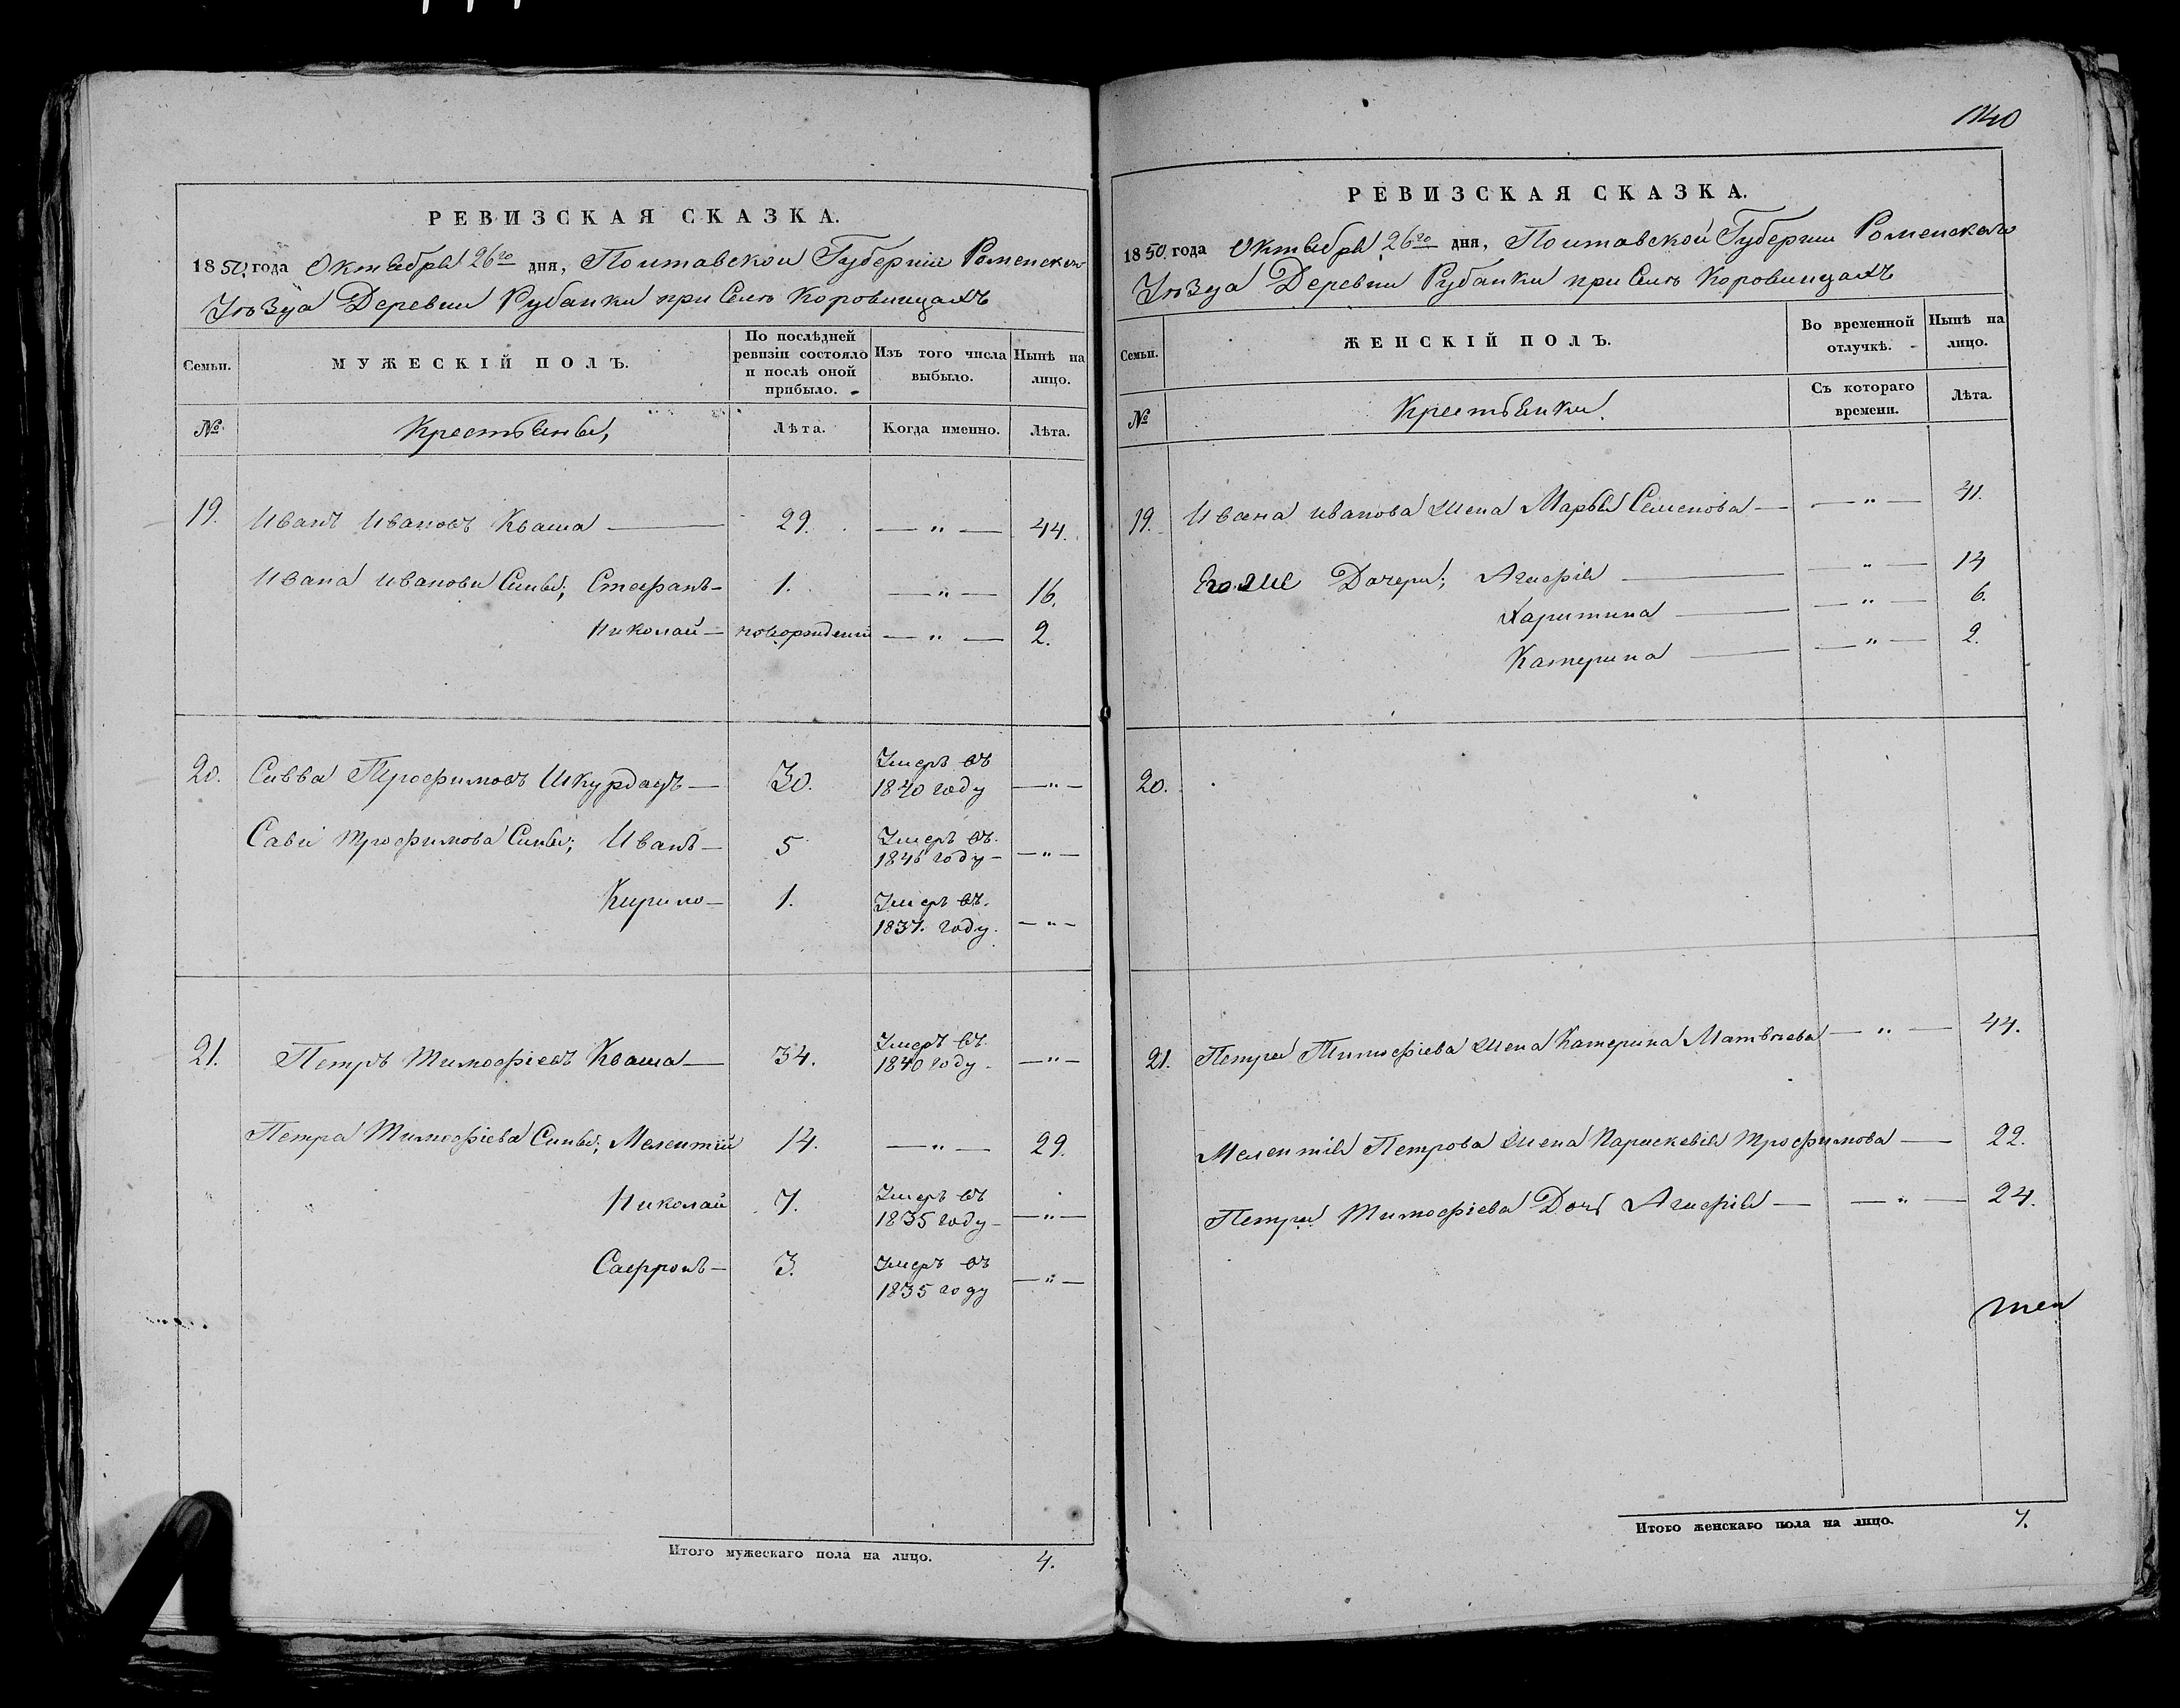 РЕВИЗСКАЯ СКАЗКА.
1850 года Октября 26го дня, Полтавской Губернии Роменского
Уѣзда Деревни Рубанки при Селѣ Коровинцахъ
Семьи.
МУЖЕСКІЙ ПОЛЪ.
По послѣдней ревизіи состояло и послѣ оной прибыло.
Изъ того числа выбыло.
Нынѣ на лицо.
№
Крестьяны,
Лѣта.
Когда именно.
Лѣта.
19. Иванъ Ивановъ Кваша — 29. — „ — 44.
Ивана Иванова Сыны; Стефанъ — 1. — „ — 16.
Николай — новорожденый — „ — 2.
20. Савва Трофимовъ Шкурдадъ — 30. Умеръ въ 1840 году — „ —
Савы Трофимова Сыны; Иванъ — 5 Умеръ въ. 1846 году — — „ —
Кирило — 1. Умеръ въ. 1837. году. — „ —
21. Петръ Тимофіевъ Кваша — 34. Умеръ въ. 1840 году. — „ —
Петра Тимофіева Сыны; Мелентій 14. — „ — 29.
Николай 7. Умеръ въ 1835 году — — „ —
Сафронъ — 3. Умеръ въ 1835 году — „ —
Итого мужескаго пола на лицо. 4.
1140
РЕВИЗСКАЯ СКАЗКА.
1850. года Октября 26го дня, Полтавской Губернии Роменского
Уѣзда Деревни Рубанки при Селѣ Коровинцахъ
Семьи.
ЖЕНСКІЙ ПОЛЪ.
Во временной отлучкѣ.
Нынѣ на лицо.
№
Крестьянки.
Съ котораго времени.
Лѣта.
19. Ивана Иванова жена Марья Семенова — — „ — 41.
Его же Дочери; Агафія — — „ — 14
Харитина — — „ — 6.
Катерина — — „ — 2.
20.
21. Петра Тимофіева жена Катерина Матвѣева — „ — 44.
Мелентія Петрова жена Параскевія Трофимова — 22.
Петра Тимофіева Дочь Агафія — — „ — 24.
Итого женскаго пола на лицо. 7.